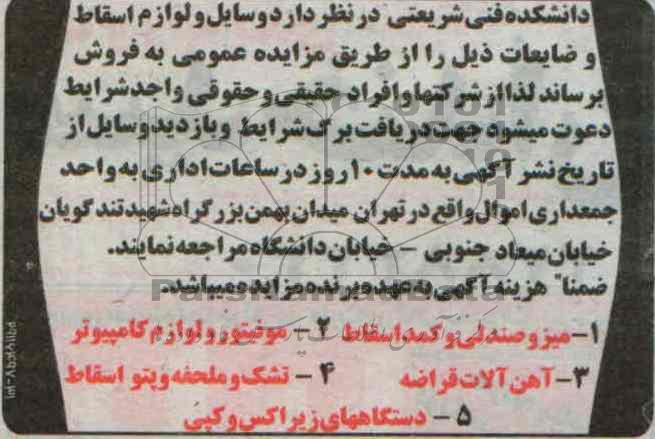 دانشکده فنی شریعتی در نظر دارد وسایل و لوازم اسقاط
و ضایعات ذیل را از طریق مزایده عمومی به فروش
برساند لذا از شرکتها و افراد حقیقی و حقوقی واجد شرایط
دعوت میشود جهت دریافت برگ شرایط و بازدید وسایل از
تاریخ نشر آگهی به مدت ۱۰ روز در ساعات اداری به واحد
جمعداری اموال واقع در تهران میدان بهمن بزرگراه شهید تندگویان
خیابان میعاد جنوبی - خیابان دانشگاه مراجعه نمایند.
ضمنا" هزینه آگهی به عهده برنده مزایده میباشد.
۱- میز و صندلی و کمد اسقاط ۲- مونیتور و لوازم کامپیوتر
۳- آهن آلات قراضه ۴- تشک و ملحفه و پتو اسقاط
۵- دستگاههای زیراکس و کپی